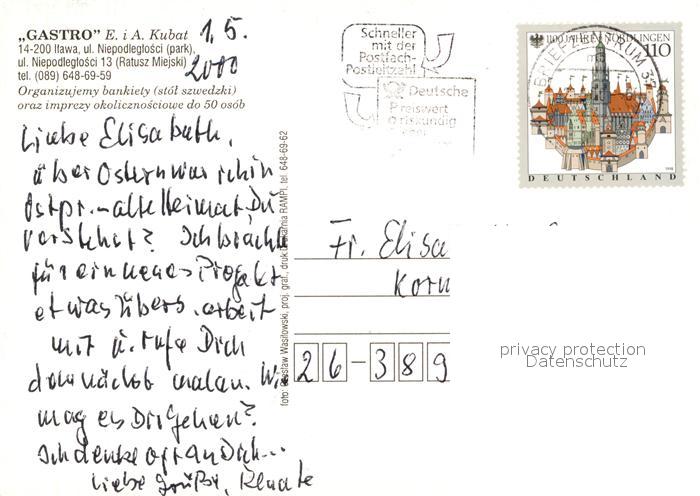 „GASTRO” E. i A. Kubat
14-200 Iława, ul. Niepodległości (park),
ul. Niepodległości 13 (Ratusz Miejski)
tel. (089) 648-69-59
Organizujemy bankiety (stół szwedzki)
oraz imprezy okolicznościowe do 50 osób
1.5.
2000
Liebe Elisabeth,
über Ostern war ich in
Ostpr. - alte Heimat, Du
verstehst? Ich brachte
für ein neues Projekt
etwas Übers. arbeit
mit u. rufe Dich
demnächst mal an. Wie
mag es Dir gehen?
Ich denke oft an Dich...
Liebe Grüße, Renate
foto: Wasiłowski, proj. graf., druk: RAMPI, tel. 648-69-62
Schneller
mit der
Postfach-
Postleitzahl
Deutsche
Preiswert
BRIEFZENTRUM
1100 JAHRE NÖRDLINGEN
110
1998
DEUTSCHLAND
Fr. Elisa
Korn
26-389
privacy protection
Datenschutz